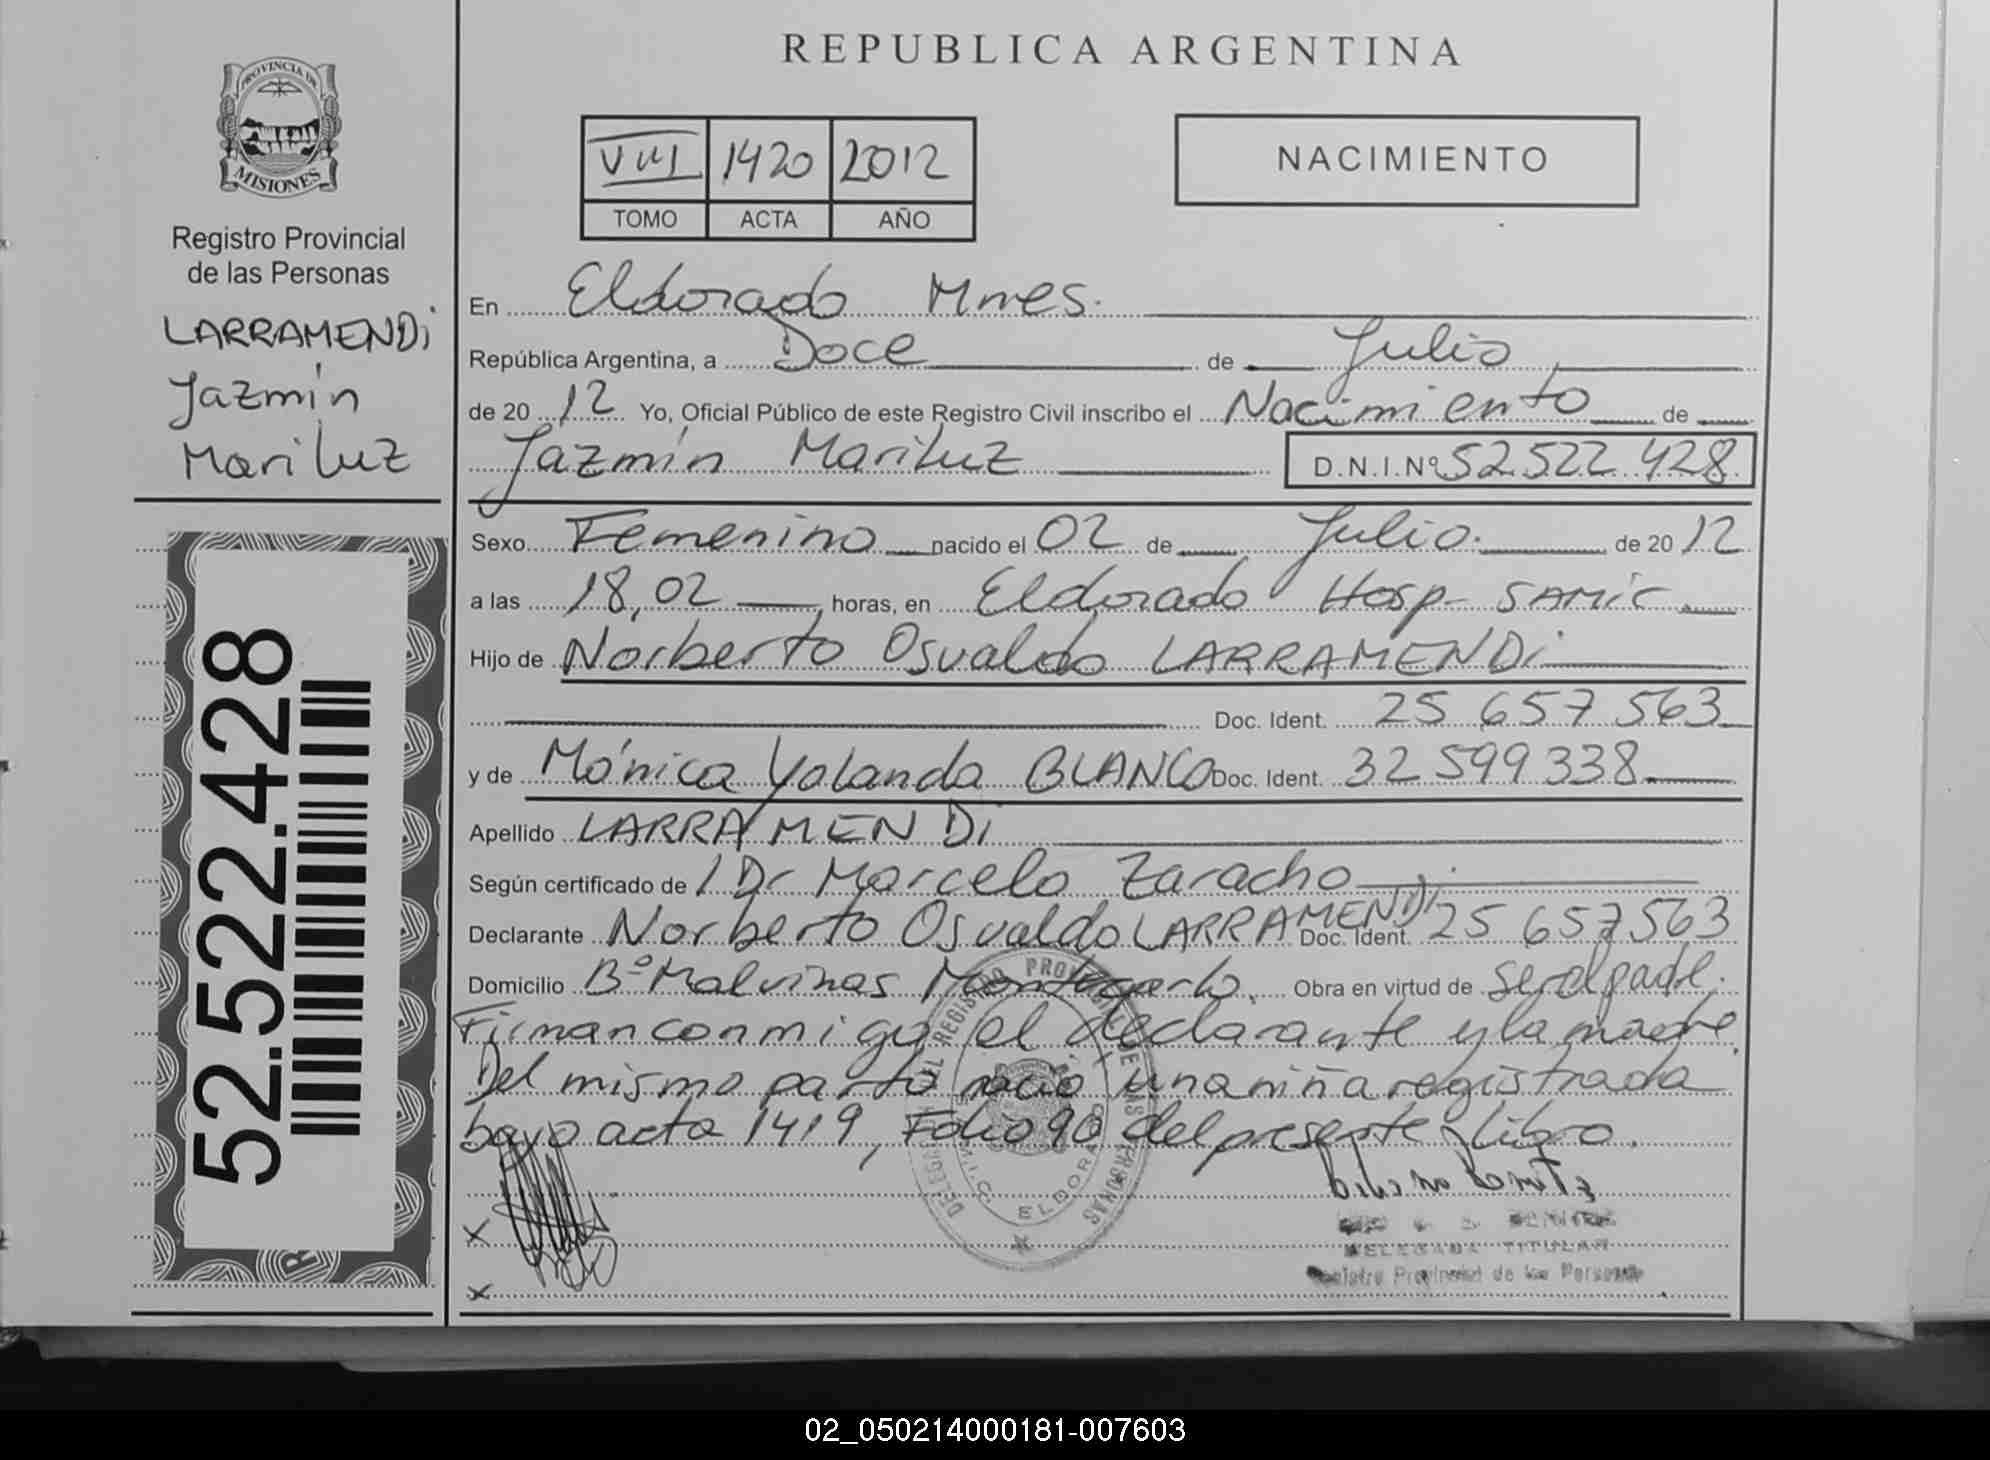 REPUBLICA ARGENTINA
PROVINCIA DE
MISIONES
Registro Provincial
de las Personas
LARRAMENDi
Jazmín
Mariluz
52.522.428
VIII 1420 2012
TOMO ACTA AÑO
NACIMIENTO
En Eldorado Mnes.
República Argentina, a Doce de Julio
de 20 12 Yo, Oficial Público de este Registro Civil inscribo el Nacimiento de
Jazmín Mariluz D.N.I.Nº 52522428
Sexo Femenino nacido el 02 de Julio. de 20 12
a las 18,02 horas, en Eldorado Hosp- SAMIC
Hijo de Norberto Osvaldo LARRAMENDi
Doc. Ident. 25 657 563
y de Mónica Yolanda BLANCO Doc. Ident. 32 599 338
Apellido LARRAMENDi
Según certificado de Dr Marcelo Zaracho
Declarante Norberto Osvaldo LARRAMENDi Doc. Ident. 25 657 563
Domicilio Bº Malvinas Montecarlo. Obra en virtud de ser el padre.
Firman conmigo el declarante y la madre.
Del mismo parto nació una niña registrada
bajo acta 1419, Folio 90 del presente libro.
x
x
ELDORADO
DELEGADA TITULAR
Registro Provincial de las Personas
02_050214000181-007603